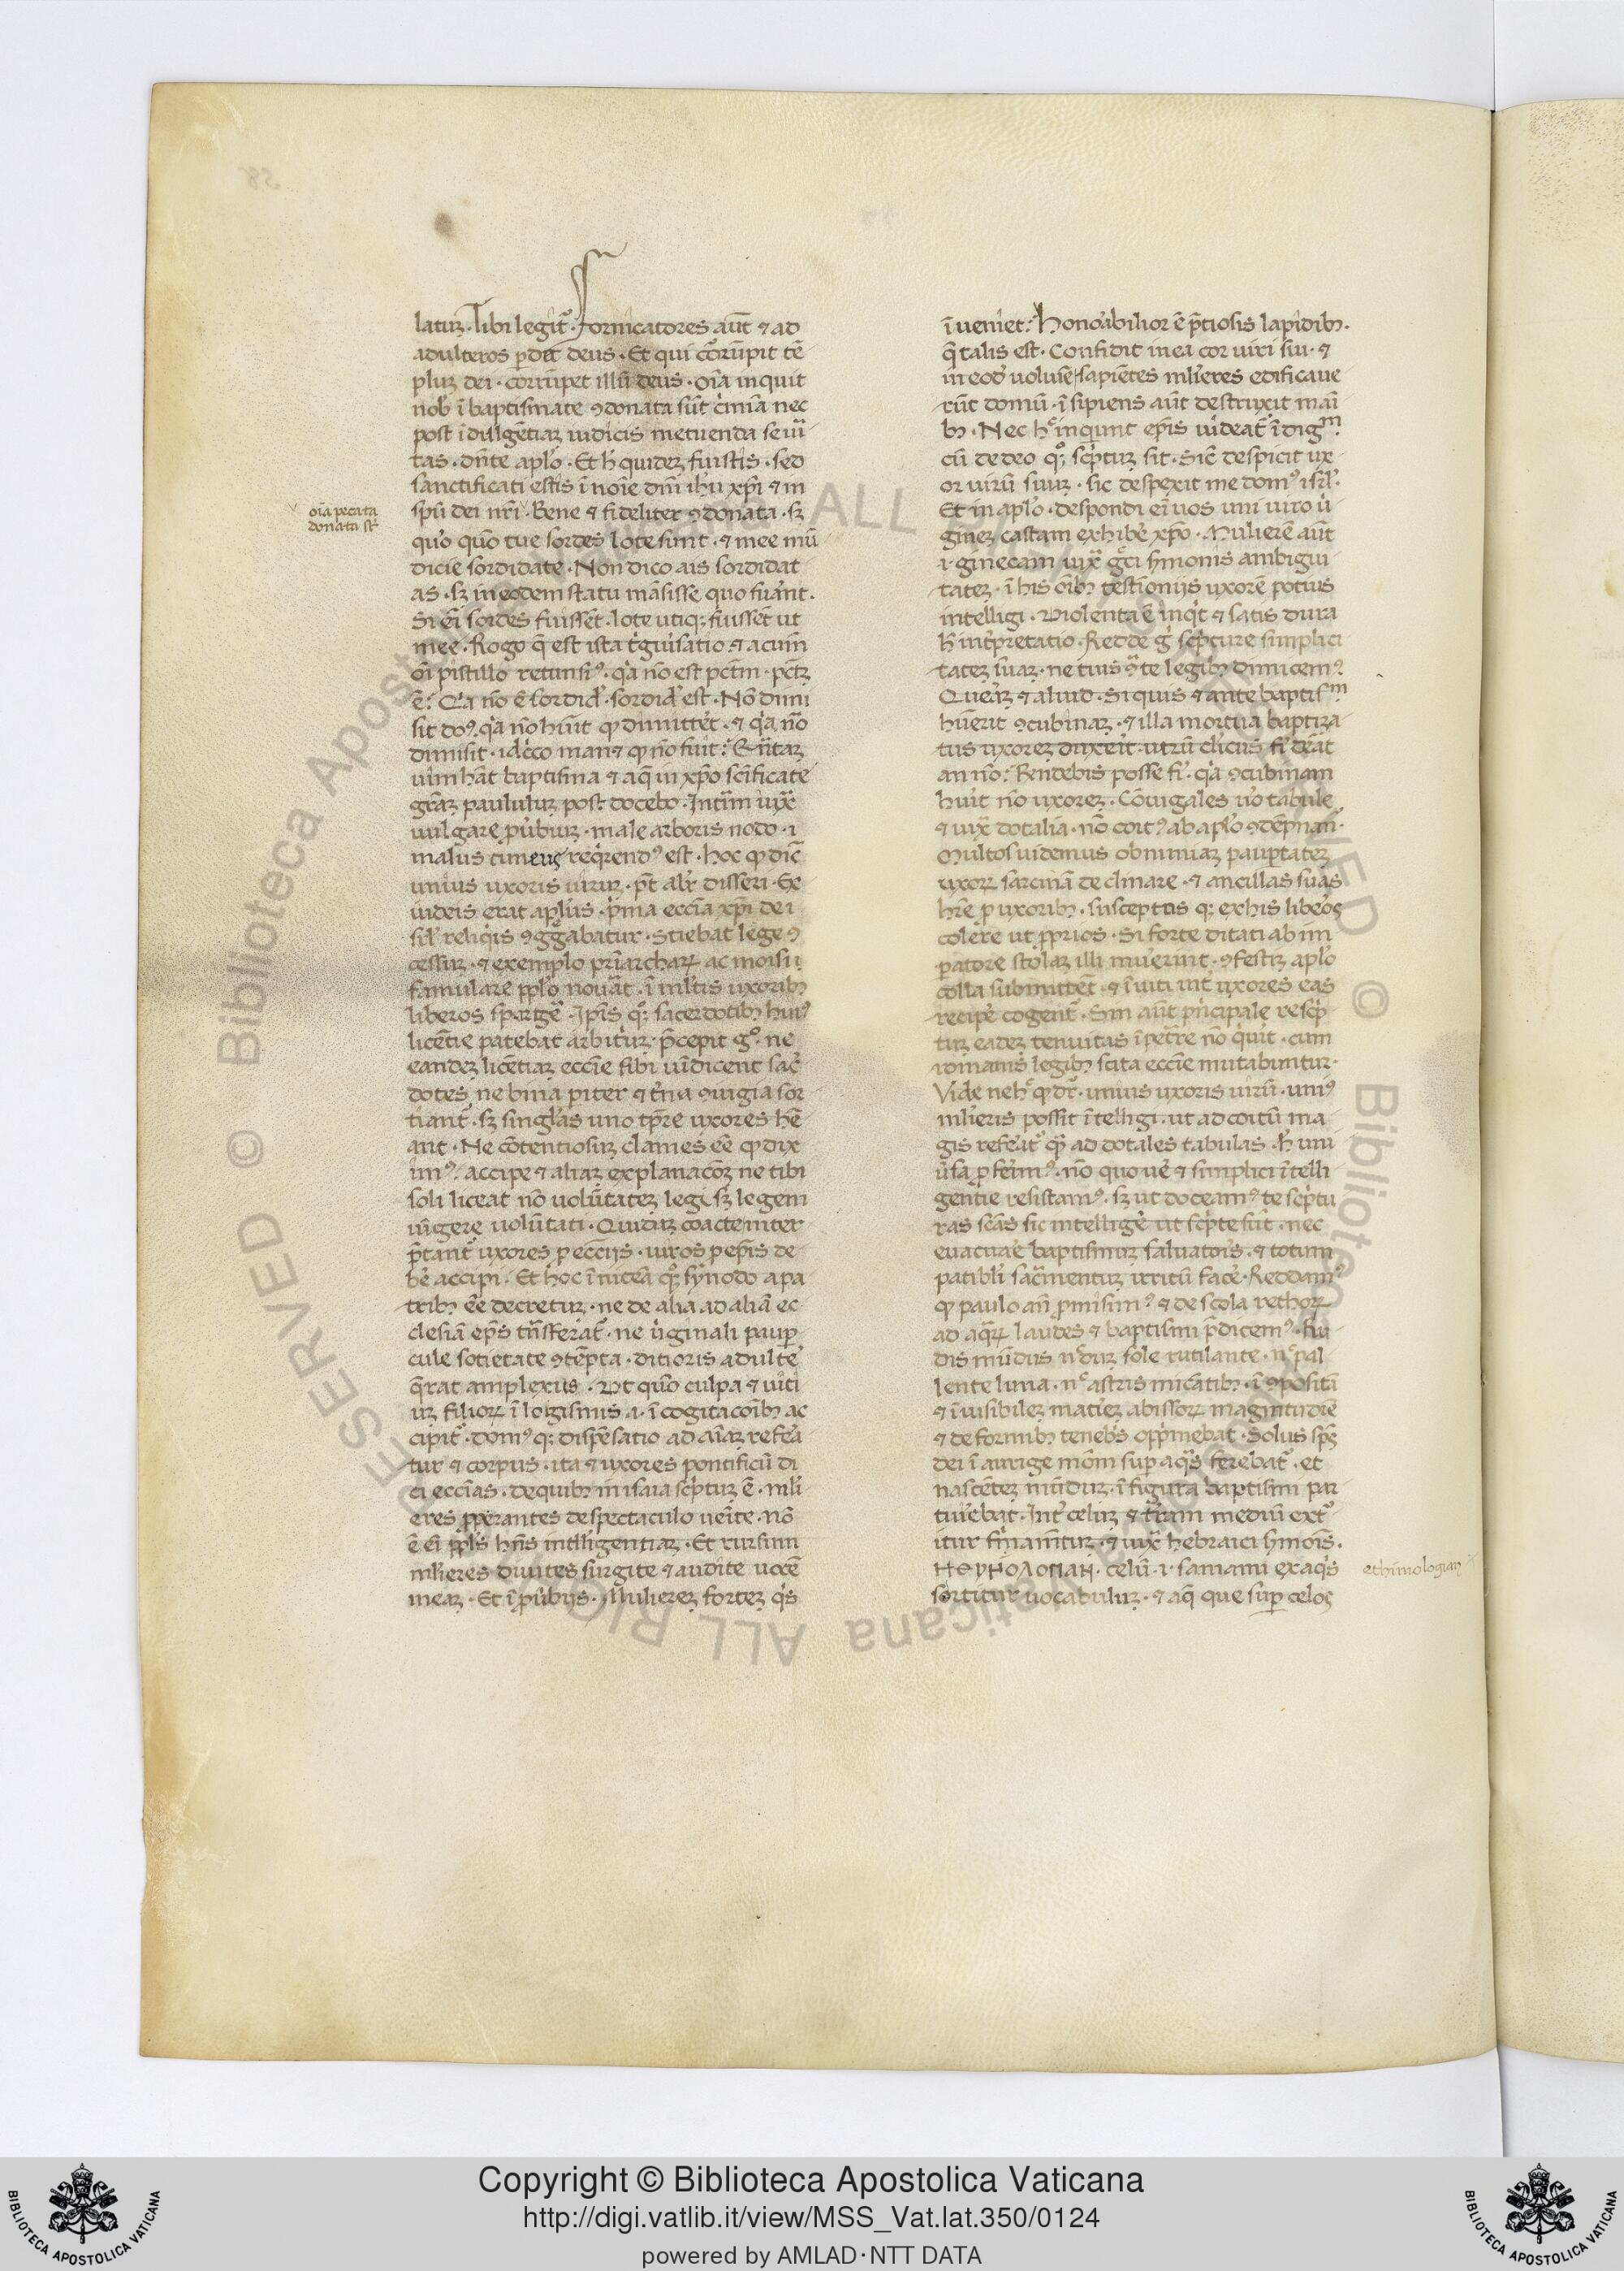 latuʒ · Tibi legit᷑ · fornicatores aut̅ ⁊ ad
adulteros p̲det deus · Et qui cor̅rupit te̅
pluʒ dei · corru̅pet illu̅ deus · oi̅a inquit
nob̅ i̅ baptismate ꝯdonata su̅t c̓mi̅a nec
post i̅dulge̅tiaʒ iudicis metuenda seui̅
tas · dn̅te aplo̅ · Et h̓ quideʒ fuistis · sed
sanctificati estis i̅ noi̅e dni̅ ih̅u xp̅i ⁊ in
spu̅ dei nr̅i · Bene ⁊ fideliter ꝯdonata · sʒ
quo̓ quo̅ tue sordes lote sint · ⁊ mee mu̅
dicie sordidate · Non dico ais sordidat
as · sʒ in eodem statu ma̅sisse quo fuer̓nt ·
Si ei̅ sordes fuisse̅t · lote utiqꝫ fuisse̅t ut
mee · Rogo q̅ est ista t̓guisatio ⁊ acum̅
oi̅ pistillo retunsiꝰ · qa̓ no̅ est pctm̅ · pct̅ʒ
e̅ : Qa̓ no̅ e̅ sordid̓ · sordid̓ est · No̅ dimi
sit do̅ꝰ · qa̓ no̅ hu̅it ꝙ dimittet̓ · ⁊ qa̓ no̅
dimisit · idc̓co man⁊ ꝙ no̅ fuit : Qu̅taʒ
uim ha̅t baptisma ⁊ aq̅ in xp̅o sci̅ficate
gra̅ʒ paululuʒ post docebo · Int̓im iuxͣ
uulgare pu̓buʒ · male arboris nodo · ı
malus cuneus req̓rendꝰ est · hoc ꝙ dic̅
unius uxoris uiruʒ · pt̅ alr̅ disseri · Ex
iudeis erat aplu̅s · p̓ma ecci̅a xp̅i de i
srl̅ reliqi̓s ꝯgga̅batur · Sciebat lege ꝯ
cessuʒ · ⁊ exemplo pri̅archaꝝ ac moisi
famulare pplo̅ nouat̓ · i̅ ml̅tis uxoribꝫ
liberos sparge̓ · Ip̅is qꝫ̊ sacerdotibꝫ huiꝰ
lice̅tie patebat arbitu̓ʒ · p̅cepit gͦ · ne
eandeʒ lice̅tiaʒ eccie̅ sibi ui̅dicent sac̓
dotes ne bina piter ⁊ t̓na ꝯiugia sor
tiant᷑ · sʒ singla̓s uno tp̅re uxores he̅
ant · Ne co̅tentiosuʒ clames ee̅ ꝙ dix
imꝰ · accipe ⁊ aliaʒ explanaco̅ʒ ne tibi
soli liceat no̅ uolu̅tateʒ legi sʒ legem
iu̅gere uolu̅tati · Quidaʒ coacte inter
p̅tant᷑ uxores p̲ ecci̅js · uiros p̲ epi̅s de
be̓ accipi · Et hoc i̅ nicea̅ qꝫ̊ synodo a pa
tribꝫ ee̅ decretuʒ · ne de alia ad alia̅ ec
clesia̅ epi̅s tn̅sferat᷑ · ne ui̓ginali paup̲
cule sotietate ꝯte̅pta · ditioris adulte̓
q̅rat amplexus · Ut quo̅ culpa ⁊ uici
uʒ filioꝝ i̅ logismis · ı · i̅ cogitaco̅ibꝫ ac
cipit᷑ · domꝰ qꝫ dispe̅satio ad ai̅aʒ refera̓
tur ⁊ corpus · ita ⁊ uxores pontificu̅ di
ci ecci̅as · de quibꝫ in isaia scp̅tuʒ e̅ · mli̓
eres pp̅erantes de spectaculo uei̅te · no̅
e̅ ei̅ ppl̅s hn̅s intelligentiaʒ · Et rursum
mli̓eres diuites surgite ⁊ audite uoce̅
meaʒ · Et i̅ pu̓bijs · Muliereʒ forteʒ qi̓s
oi̅a peccata
donata st̅
i̅ueniet : Honora̓bilior e̅ p̅tiosis lapidibꝫ ·
q̅ talis est · Confidit in ea cor uiri sui · ⁊
in eod̓ uolui̅e sapie̅tes mli̓eres edificaue
ru̅t domu̅ · i̅sipiens aut̅ destruxit mai̅
bꝫ · Nec hͨ inquiunt epi̅s uideat᷑ i̅dig̅ᵐ
cu̅ de deo qꝫ̊ scp̅tuʒ sit · Sic̅ despicit ux
or uiru̅ suuʒ · sic despexit me domꝰ isrl̅ ·
Et in aplo̅ · despondi ei̅ uos uni uiro ui̓
gineʒ castam exhibe̓ xp̅o · Muliere̅ aut̅
· ı · ginecam iuxͣ gc̅i s̓monis ambigui
tateʒ · i̅ his oi̅bꝫ testimo̅ijs uxore̅ potius
intelligi · Uiolenta e̅ inqi̓t ⁊ satis dura
h̓ int̓pretatio · Redde g̓ scp̅ture simplici
tateʒ suaʒ · ne tuis ꝯͣ te legibꝫ dimicemꝰ
Quer̓ʒ ⁊ aliud · Si quis ⁊ ante baptisᵐ
hu̅erit ꝯcubinaʒ · ⁊ illa mortua baptiza
tus uxoreʒ duxerit · utru̅ clic̓us fi̓ deat̓
an no̅ : Rn̅debis posse fi̓ · qa̓ ꝯcubinam
huit̅ no̅ uxoreʒ · Coniugales uo̓ tabule
⁊ iux̅ dotalia · no̅ coitꝰ ab aplo̅ ꝯde̅pnan̓ ·
Multos uidemus ob nimiaʒ paup̲tateʒ
uxoꝝ sarcina̅ declinare · ⁊ ancillas suas
hr̅e p̲ uxoribꝫ · susceptos qꝫ ex his libeo̓s
colere ut pp̅rios · Si forte ditati ab im
p̲atore stolaʒ illi muerint · ꝯfestiʒ aplo̅
colla submittet᷑ · ⁊ i̅uiti int̓ uxores eas
recipe̓ cogent᷑ · Sin aut̅ pi̓ncipale rescp̅
tuʒ eadeʒ tenuitas i̅petr̅e no̅ qui̓t · cum
romanis legibꝫ scita eccie̅ mutabuntur ·
Vide ne hͨ ꝙ dr̅ · unius uxoris uiru̅ · uniꝰ
mli̓eris possit i̅telligi · ut ad coitu̅ ma
gis referat᷑ qͣ̅ ad dotales tabulas · h̓ uni
u̓sa p̲ferimꝰ · no̅ quo ue̓ ⁊ simplici i̅telli
gentie resistamꝰ · sʒ ut doceamꝰ te scp̅tu
ras sca̅s sic intellige̓ ut scp̅te su̅t · nec
euacuar̓e baptismuʒ saluatois̓ · ⁊ totum
patibli̓ sacm̅entuʒ irritu̅ face̓ · Reddamꝰ
ꝙ paulo an̅ pm̅isimꝰ · ⁊ de scola rethoꝝ
ad aqͣꝝ laudes ⁊ baptismi p̅dicemꝰ · Ru
dis mu̅dus nͨduʒ sole rutilante · nͨ pal
lente luna · nͨ astris mica̅tibꝫ · i̅ꝯposita̅
⁊ i̅uisibileʒ materi̓ʒ abissoꝝ magnitudie̅
⁊ deformibꝫ teneb̓s opp̓mebat · Solus sps̅
dei i̅ aurige mo̅m sup̲ aqͣs ferebat᷑ · et
nasce̅teʒ mu̅duʒ · i̅ figura baptismi par
turi̓ebat · Int̓ celuʒ ⁊ t̓ram mediu̅ ext᷑
itur fir̓mam̅tuʒ · ⁊ iuxͣ hebraici s̓mois̅ ·
celu̅ · ı · samaim ex aqi̓s
sortitur uocabuluʒ · ⁊ aq̅ que sup̲ celos
ethimologiam
Copyright © Biblioteca Apostolica Vaticana
http://digi.vatlib.it/view/MSS_Vat.lat.350/0124
powered by AMLAD·NTT DATA